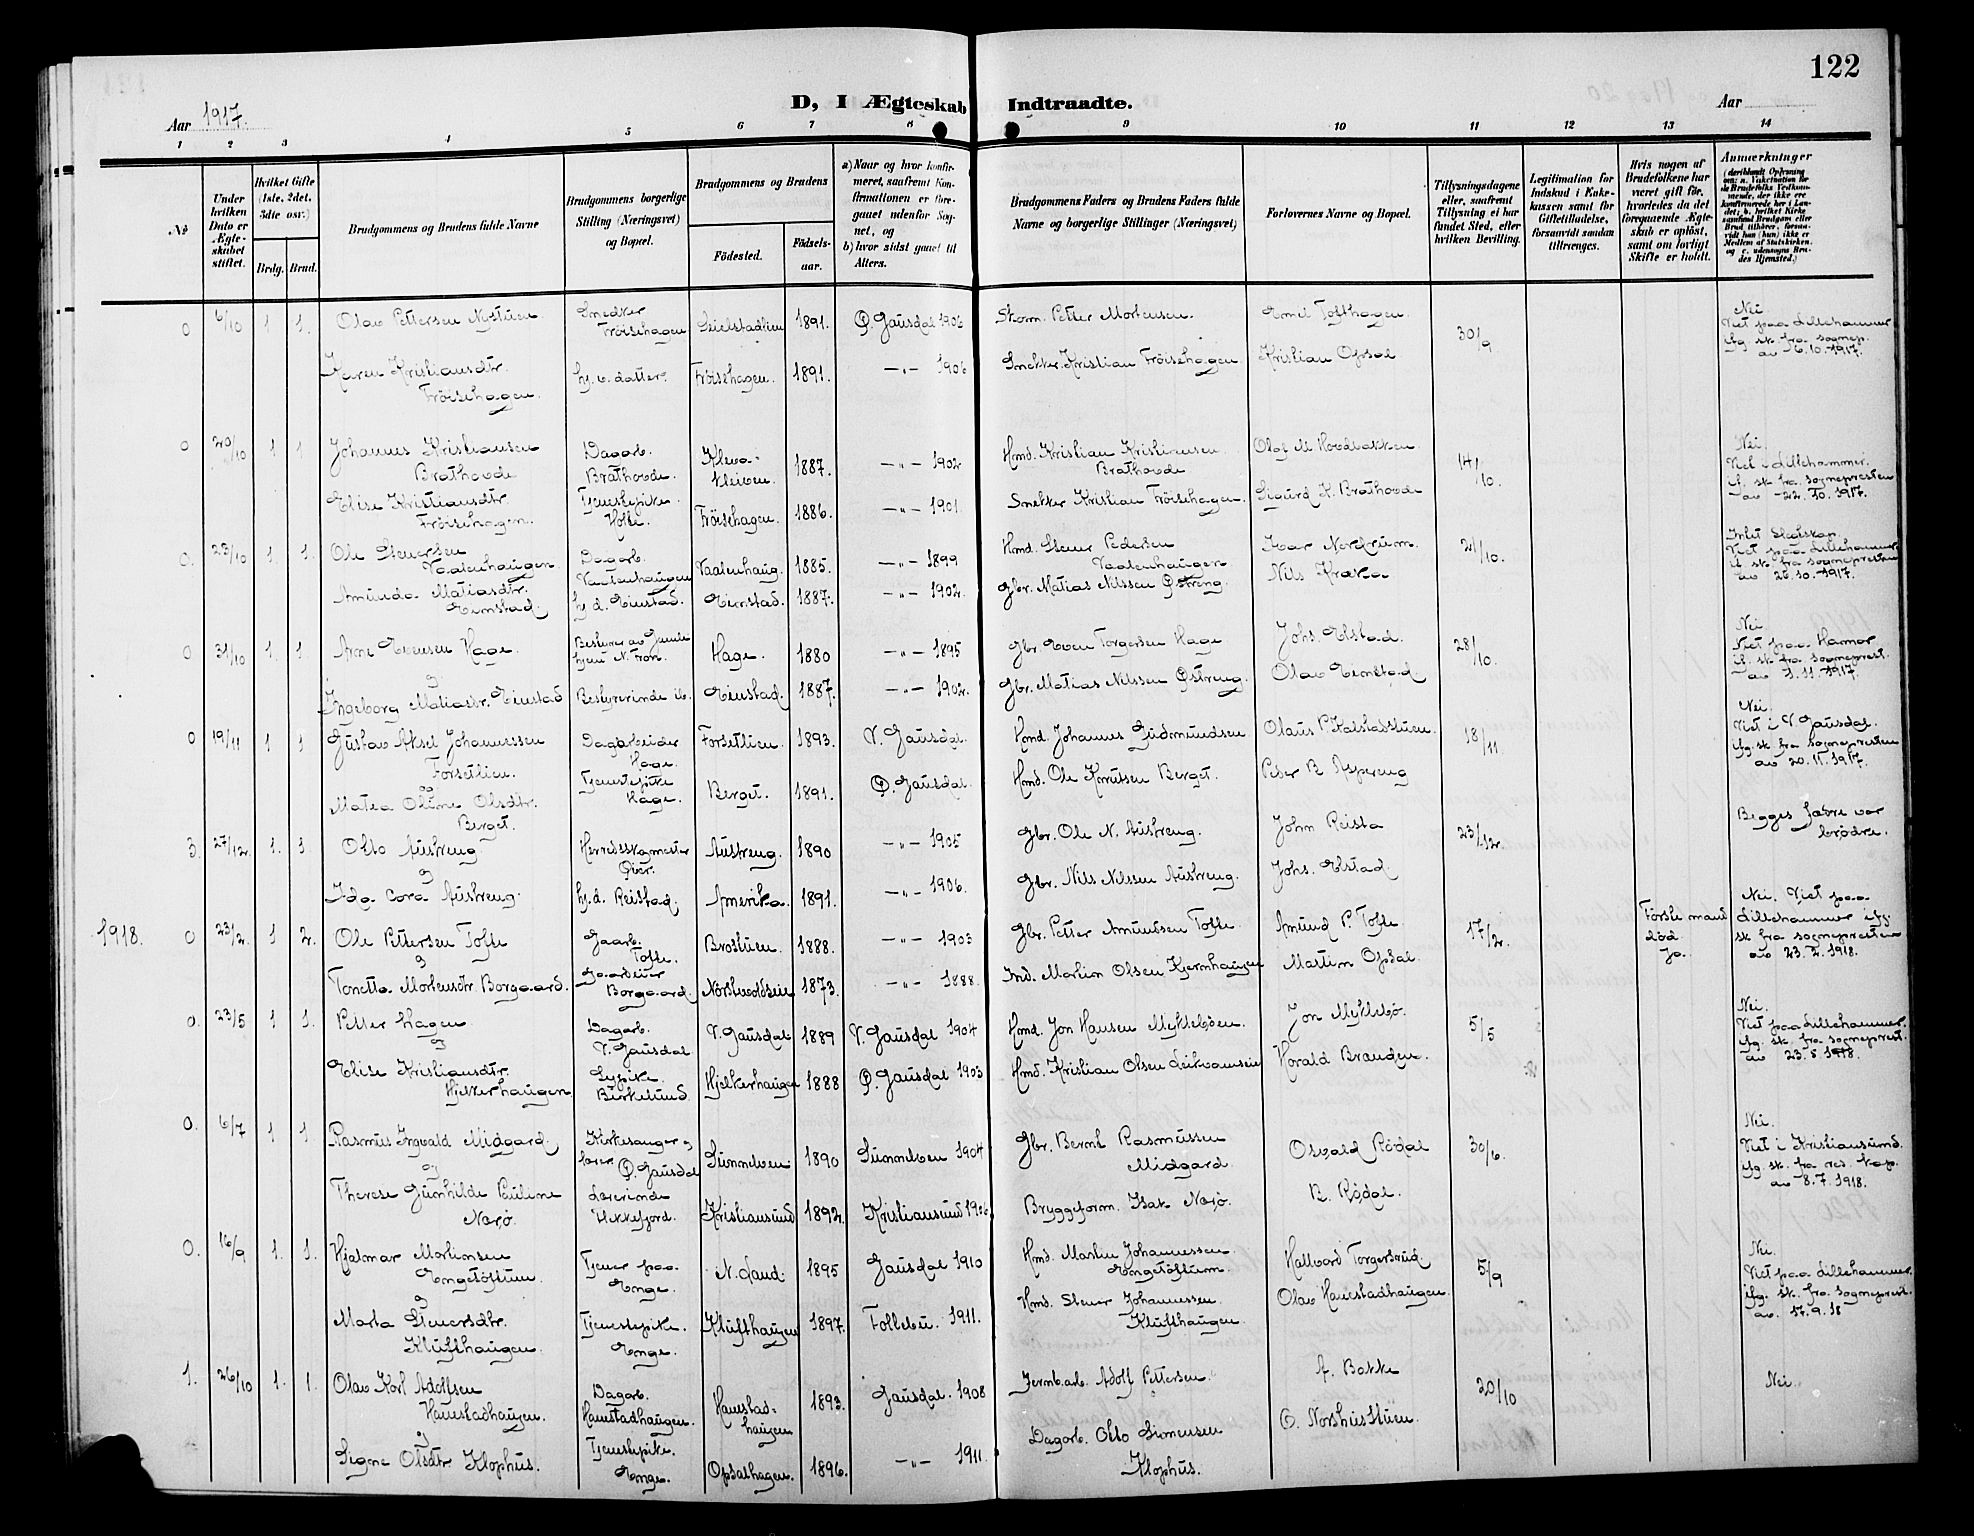 122
D, I Ægteskab Indtraadte.
Aar 1917.
Aar
1 2 3 4 5 6 7 8 9 10 11 12 13 14
No
Under hvilken Dato er Ægteskabet stiftet.
Hvilket Gifte (1ste, 2det, 3dte osv.)
Brdg. Brud.
Brudgommens og Brudens fulde Navne
Brudgommens borgerlige Stilling (Næringsvei) og Bopæl.
Brudgommens og Brudens
Fødested.
Fødselsaar.
a) Naar og hvor konfirmeret, saafremt Konfirmationen er foregaaet udenfor Sognet, og
b) hvor sidst gaaet til Alters.
Brudgommens Faders og Brudens Faders fulde Navne og borgerlige Stillinger (Næringsvei)
Forlovernes Navne og Bopæl.
Tillysningsdagene eller, saafremt Tillysning ei har fundet Sted, efter hvilken Bevilling.
Legitimation for Indskud i Enkekassen samt for Giftetilladelse, forsaavidt saadan tiltrænges.
Hvis nogen af Brudefolkene har været gift før, hvorledes da det foregaaende Ægteskab er opløst, samt om lovligt Skifte er holdt.
Anmærkninger
0 6/10 1 1. Olav Pettersen Nystuen Snedker Frøisehagen 1891. Ø. Gausdal 1906 Skom. Petter Mortensen. Emil Tofthagen. 30/9 Nei. Viet paa Lillehammer ifg. sk. fra sognep. av 6.10.1917.
Karen Kristiansdtr. Frøisehagen. hj.v. datter. Frøisehagen. 1891. —"— 1906 Snekker Kristian Frøisehagen Kristian Opsal
0 20/10 1 1 Johannes Kristiansen Brathovde Dagarb. Brathovde. Klevakleiven. 1887. —"— 1902 Hmd. Kristian Kristiansen Brathovde 14/10. Nei. Viet i Lillehammer. if. sk. fra sognepresten av 22.10.1917.
Elise Kristiansdtr. Frøisehagen. Tjenestepike. Frøisehagen. 1886. —"— 1901. Snekker Kristian Frøisehagen. Sigurd K. Brathovde
0. 23/10 1 1. Ole Steuersen Vaalenhaugen Dagarb. Vaalenhaugen Vaalenhaug. 1885. —"— 1899 Hmd. Steuer Pedersen Vaalenhaugen Ivar Nordrum. 21/10. Intet Slegtskap. Viet paa Lillehammer if sk fra sognepresten av 26.10.1917.
Amunda Matiasdtr. Einstad. hj. d. Einstad. Einstad. 1887. —"— 1902. Gbr. Matias Nilssen Østreng. Nils Kraka
0 31/10 1. 1. Arne Evensen Hage. og Bestyrer av Gamlehjem N. Fron. Hage. 1880 —"— 1895 Gbr. Even Torgersen Hage Johs. Elstad. 28/10. Nei. Viet paa Hamar if. sk. fra sogneprest. av 1.11.1917.
Ingeborg Matiasdtr. Einstad Bestyrerinde ib. Einstad. 1887. —"— 1902. Gbr. Matias Nilssen Østreng. Olav Einstad
0 19/11 1 1 Gustav Aksel Johannessen Forsetlien. og Dagarbeider Hage. Forsetlien. 1893. V. Gausdal. Hmd. Johannes Gudmundsen 18/11. Nei. Viet i V. Gausdal. ifg. sk. fra sognepresten av 20.11.1917.
Matea Oline Olsdtr. Berget. Tjenestepike Hage. Berget. 1891. Ø. Gausdal. Hmd. Ole Knutsen Berget. Peder B. Aspeng
3. 27/12. 1. 1. Otto Austreng og Herredsskogmester Øier. Austreng. 1890 —"— 1905 Gbr. Ole N. Austreng. John Reista 23/12. Begges fædre var brødre.
Ida Cora Austreng. hj. d. Reistad. Amerika. 1891. —"— 1906. Gbr. Nils Nilssen Austreng. Johs. Elstad.
1918. 0 23/2. 1 2. Ole Pettersen Tofte og Gaarb. Tofte. Brostuen. 1888. —"— 1903 Gbr. Petter Amundsen Tofte. Amund P. Tofte. 17/2. Første mand død. Ja. Nei. Viet paa Lillehammer ifg. sk fra sognepresten av 23.2.1918.
Tonetta Mortensdtr. Borgaard. Gaardeier Borgaard. 1873. —"— 1888. Ind. Martin Olsen Kjernhaugen Martin Opsal.
0. 23/5 1 1. Petter Hagen og Dagarb. V. Gausdal V. Gausdal 1889 V. Gausdal 1904 Hmd. Jon Hansen Myklebøen. Jon Myklebø. 5/5 Nei. Viet paa Lillehammer. ifg. sk. fra sogneprest. av 23.5.1918.
Elise Kristiansdtr. Hjelkerhaugen Birkelund. Hjelkerhaugen 1888 Ø. Gausdal 1903 Hmd. Kristian Olsen Harald Branden.
0. 6/7 1 1. Rasmus Ingvald Midgard. og Kirkesanger og lærer Ø. Gausdal Sunnelven. 1890 Sunnelven 1904 Gbr. Bernt Rasmussen Midgard. Osvald Rødal 30/6. Nei. Viet i Kristiansund. ifg. sk. fra res. kap. av 8.7.1918.
Therese Gunhilde Pauline Nærø. Lærerinde Kristiansund 1892. Kristiansund 1906 Bryggeform. Isak Nærø. B. Rødal.
0. 16/9 1. 1. Hjalmar Martinsen Engetøftum. og Tjener paa Enge. N. Land. 1895 Gausdal 1910 Hmd. Martin Johannessen Engetøftum. Hallvard Torgersrud. 5/9 Nei. Viet paa Lillehammer. ifg. sk. fra sogneprest. av. 17.9.18
Marta Steuersdtr. Klufthaugen. Tjenestepike. Enge. Klufthaugen 1897. Follebu. 1911. Hmd. Steuer Johannessen. Klufthaugen. Olav Hanestadhaugen.
1. 26/10 1. 1. Olav Karl Adolfsen Hanestadhaugen. og Dagarb. Hanestadhaugen. Hanestadhaugen 1893. Gausdal. 1908 Jernb.arb. Adolf Pettersen. A. Bakke 20/10 Nei.
Signe Olsdtr. Klophus. Tjenestepike. Enge. Opsalhagen. 1896. —"— 1911. Dagarb. Otto Simensen Klophus.